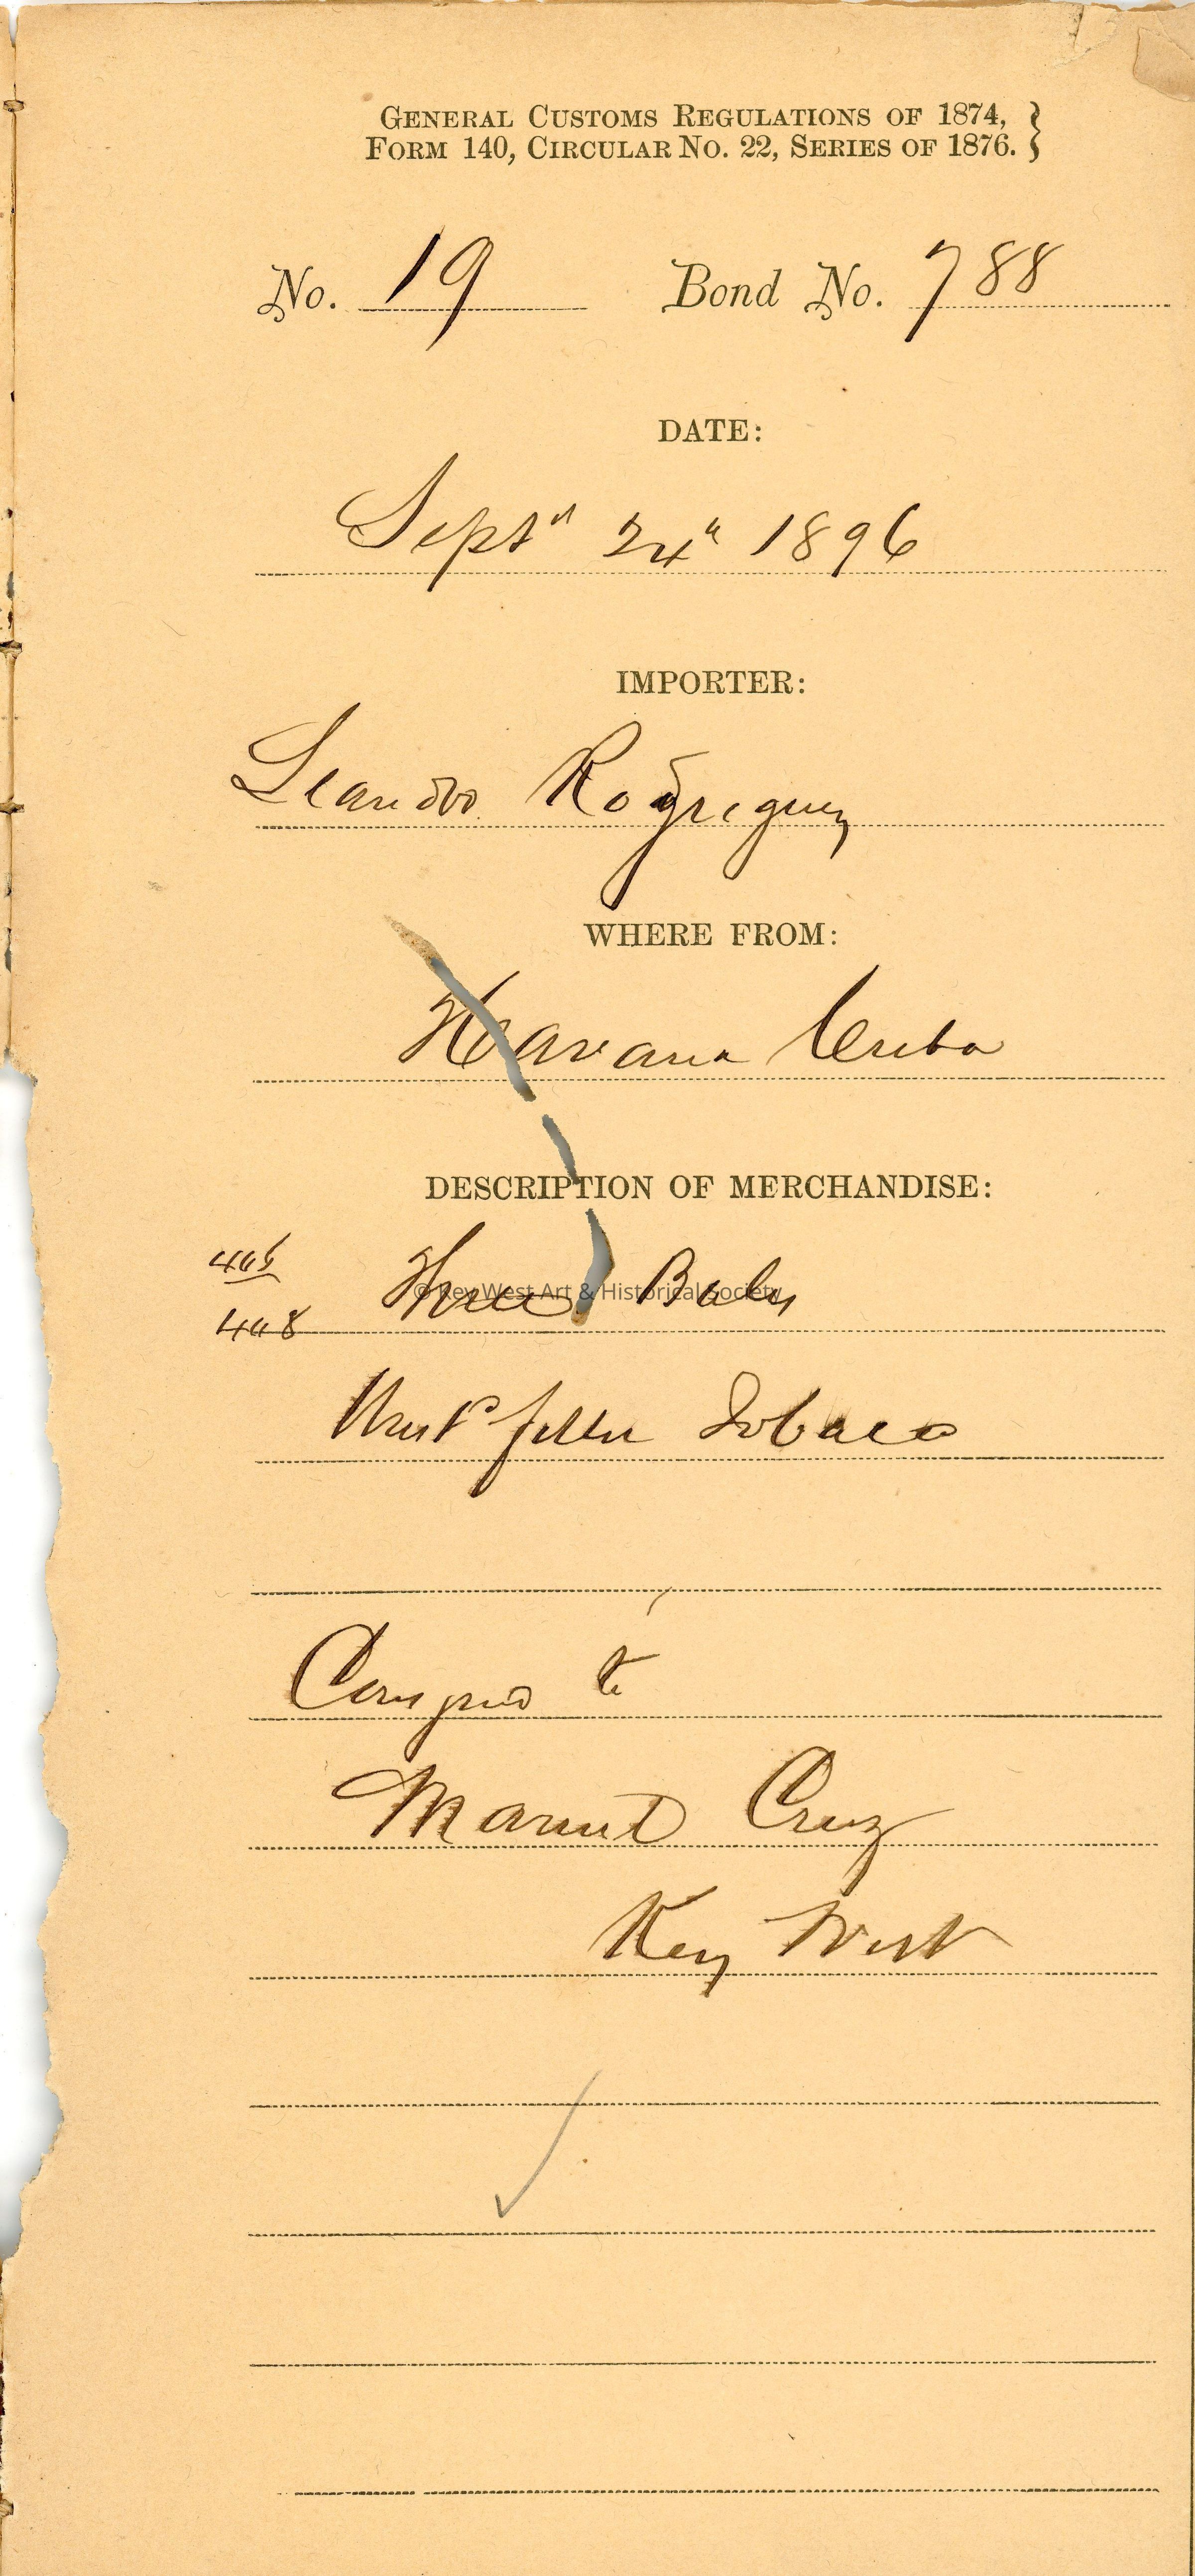 GENERAL CUSTOMS REGULATIONS OF 1874,
FORM 140, CIRCULAR NO. 22, SERIES OF 1876. }
No. 19 Bond No. 788
DATE:
Sept 24" 1896
IMPORTER:
Leandro Rodriguez
WHERE FROM:
Havana Cuba
DESCRIPTION OF MERCHANDISE:
Three Bales
© Key West Art & Historical Society
filler Tobaco
to
Manuel Cruz
Key West